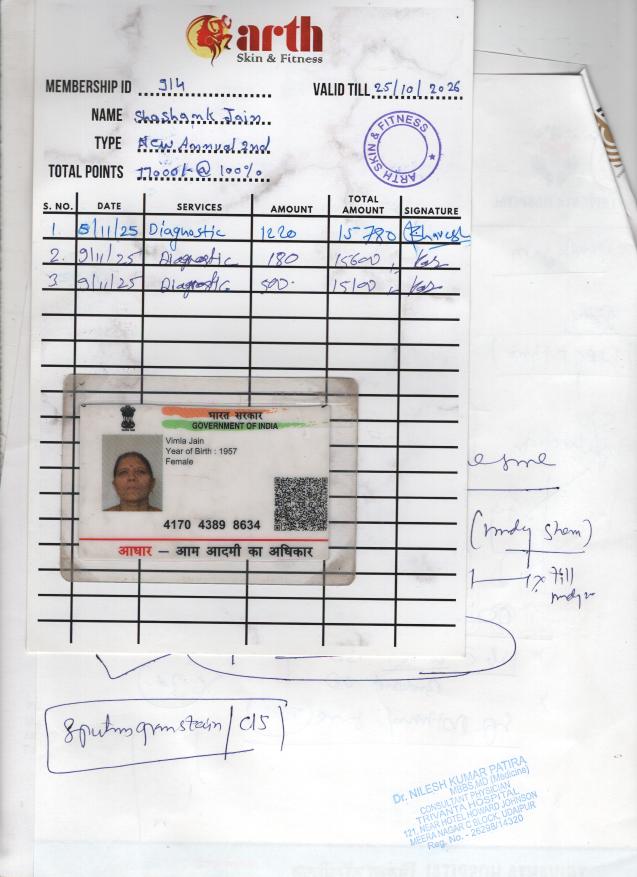 arth
Skin & Fitness
MEMBERSHIP ID 914 VALID TILL 25/10/2026
NAME Shashank Jain
TYPE New Annual 2nd
TOTAL POINTS 17000/- @ 100%
ARTH SKIN & FITNESS
S. NO. DATE SERVICES AMOUNT TOTAL AMOUNT SIGNATURE
1. 5/11/25 Diagnostic 1220 15780 Bhavesh
2. 9/11/25 Diagnostic 180 15600
3 9/11/25 Diagnostic 500 15100
भारत सरकार
GOVERNMENT OF INDIA
Vimla Jain
Year of Birth : 1957
Female
4170 4389 8634
आधार – आम आदमी का अधिकार
Sputum gramstain / C/S
Dr. NILESH KUMAR PATIRA
MBBS,MD (Medicine)
CONSULTANT PHYSICIAN
TRIVANTA HOSPITAL
121, NEAR HOTEL HOWARD JOHNSON
MEERA NAGAR C BLOCK, UDAIPUR
Reg. No. - 26298/14320